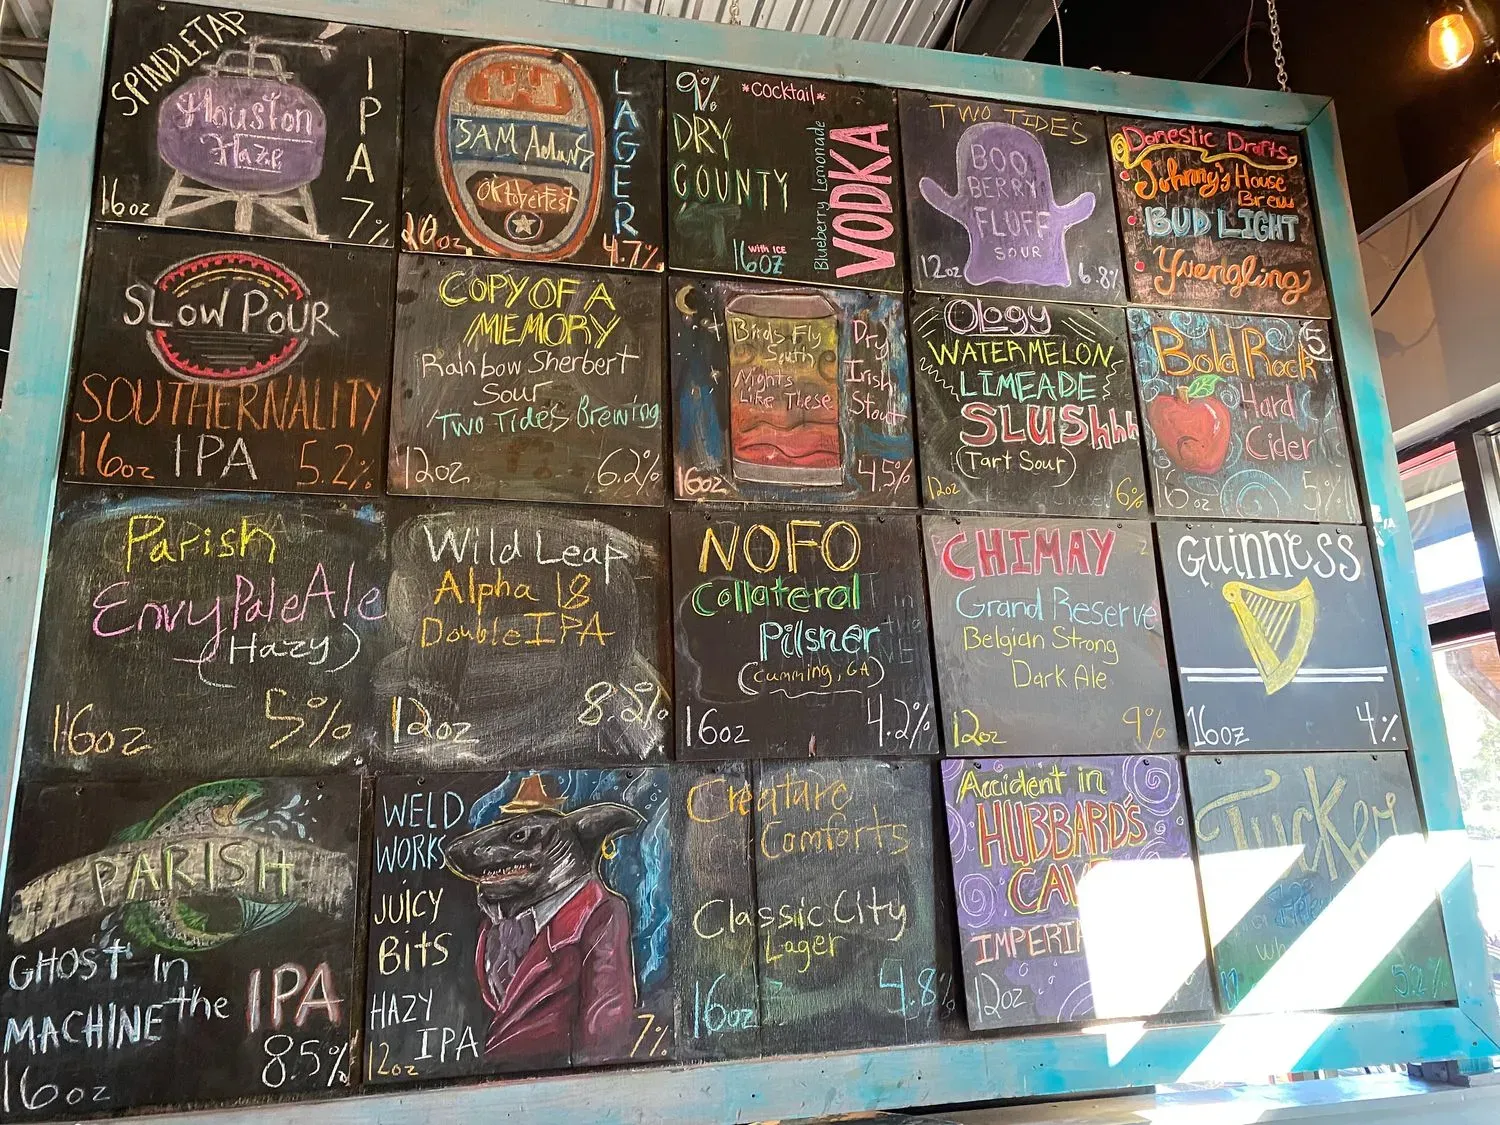 SPINDLETAP
Houston
Haze
IPA
16oz
7%
SAM Adams
OKtoberfest
LAGER
20oz
4.7%
9%
*cocktail*
DRY
COUNTY
Blueberry Lemonade
VODKA
with ICE
16oz
TWO TIDES
BOO
BERRY
FLUFF
SOUR
12oz
6.8%
Domestic Drafts
Johnny's House
Brew
BUD LIGHT
Yuengling
SLOW POUR
SOUTHERNALITY
16oz IPA 5.2%
COPY OF A
MEMORY
Rainbow Sherbert
Sour
Two Tides Brewing
12oz 6.2%
Birds Fly
South
Nights
Like These
Dry
Irish
Stout
16oz
4.5%
Ology
WATERMELON
LIMEADE
SLUShhh
(Tart Sour)
12oz 6%
Bold Rock
Hard
Cider
16oz 5%
Parish
Envy Pale Ale
(Hazy)
16oz 5%
Wild Leap
Alpha 18
Double IPA
12oz 8.2%
NOFO
Collateral
Pilsner
(Cumming, GA)
16oz 4.2%
CHIMAY
Grand Reserve
Belgian Strong
Dark Ale
12oz 9%
GUINNESS
16oz 4%
PARISH
GHOST in
the
MACHINE
IPA
8.5%
16oz
WELD
WORKS
JUICY
BitS
HAZY
IPA
12oz
7%
Creature
Comforts
Classic City
Lager
16oz 4.8%
Accident in
HUBBARD'S
12oz
Tucker
5.2%